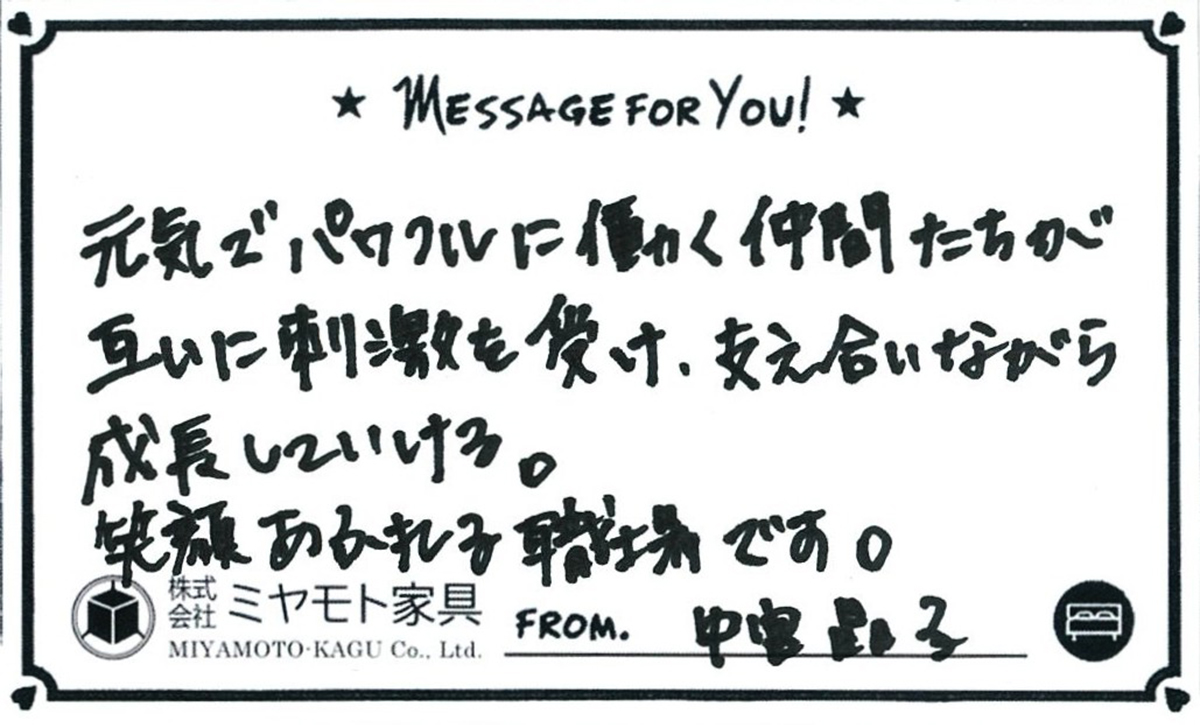 ★ MESSAGE FOR YOU! ★
元気でパワフルに働く仲間たちが
互いに刺激を受け、支え合いながら
成長していける。
笑顔あふれる職場です。
株式会社 ミヤモト家具
MIYAMOTO·KAGU Co., Ltd.
FROM. 中宮 子